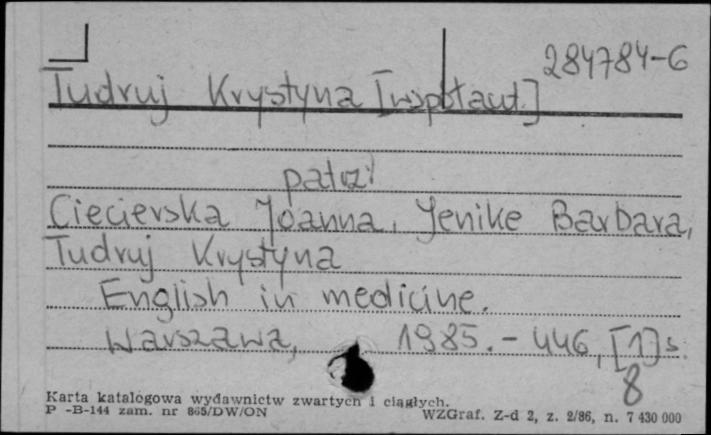 284784-G
Tudruj Krystyna [współaut.]
patrz:
Ciecierska Joanna, Jenike Barbara,
Tudruj Krystyna
English in medicine.
Warszawa, 1985. - 446, [1] s.
8
Karta katalogowa wydawnictw zwartych i ciągłych.
P -B-144 zam. nr 865/DW/ON
WZGraf. Z-d 2, z. 2/86, n. 7 430 000